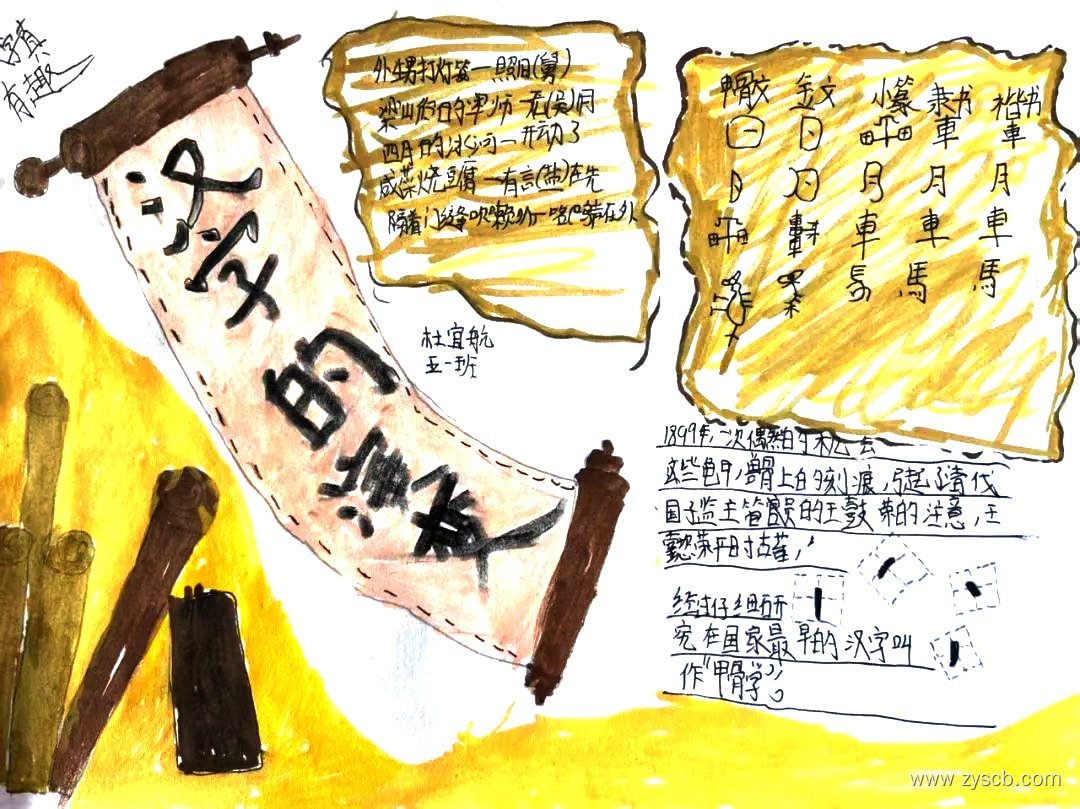 字真
有趣
汉字的演变
外甥打灯笼一照旧(舅)
梁山伯的军师一无(吴)用
四月的冰河一开动了
咸菜烧豆腐一有言(盐)在先
隔着门缝吹喇叭一名声在外
杜宜航
五一班
甲骨文 金文 小篆 隶书 楷书
日 日 車 車
月 月 月 月 月
車 車 車 車 車
馬 馬
1899年,一次偶然的机会
这些龟甲,兽骨上的刻痕,引起了清代
国子监主管官员的王懿荣的注意,王
懿荣平时古董,
经过仔细研
究在国家最早的汉字叫
作"甲骨字"。
www.zyscb.com